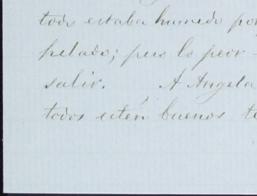 todo estaba humedo por
pelado; pero lo peor
salir. A Angela
todos estén buenos te